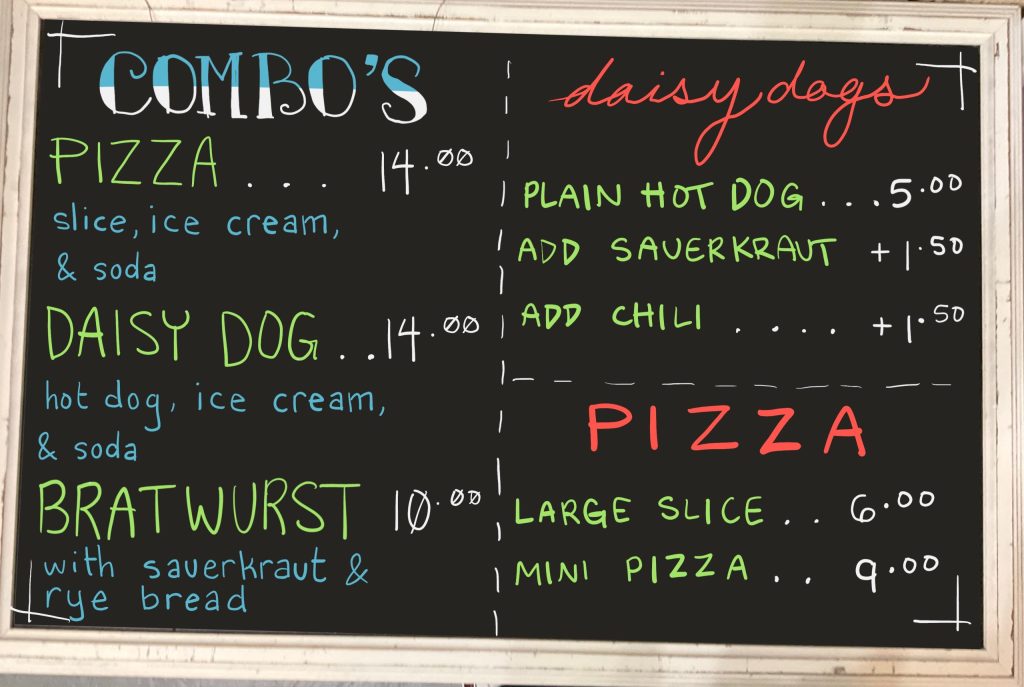 COMBO'S
PIZZA . . . 14.00
slice, ice cream,
& soda
DAISY DOG . . 14.00
hot dog, ice cream,
& soda
BRATWURST 10.00
with sauerkraut &
rye bread
daisy dogs
PLAIN HOT DOG . . . 5.00
ADD SAUERKRAUT +1.50
ADD CHILI . . . . +1.50
PIZZA
LARGE SLICE . . 6.00
MINI PIZZA . . 9.00